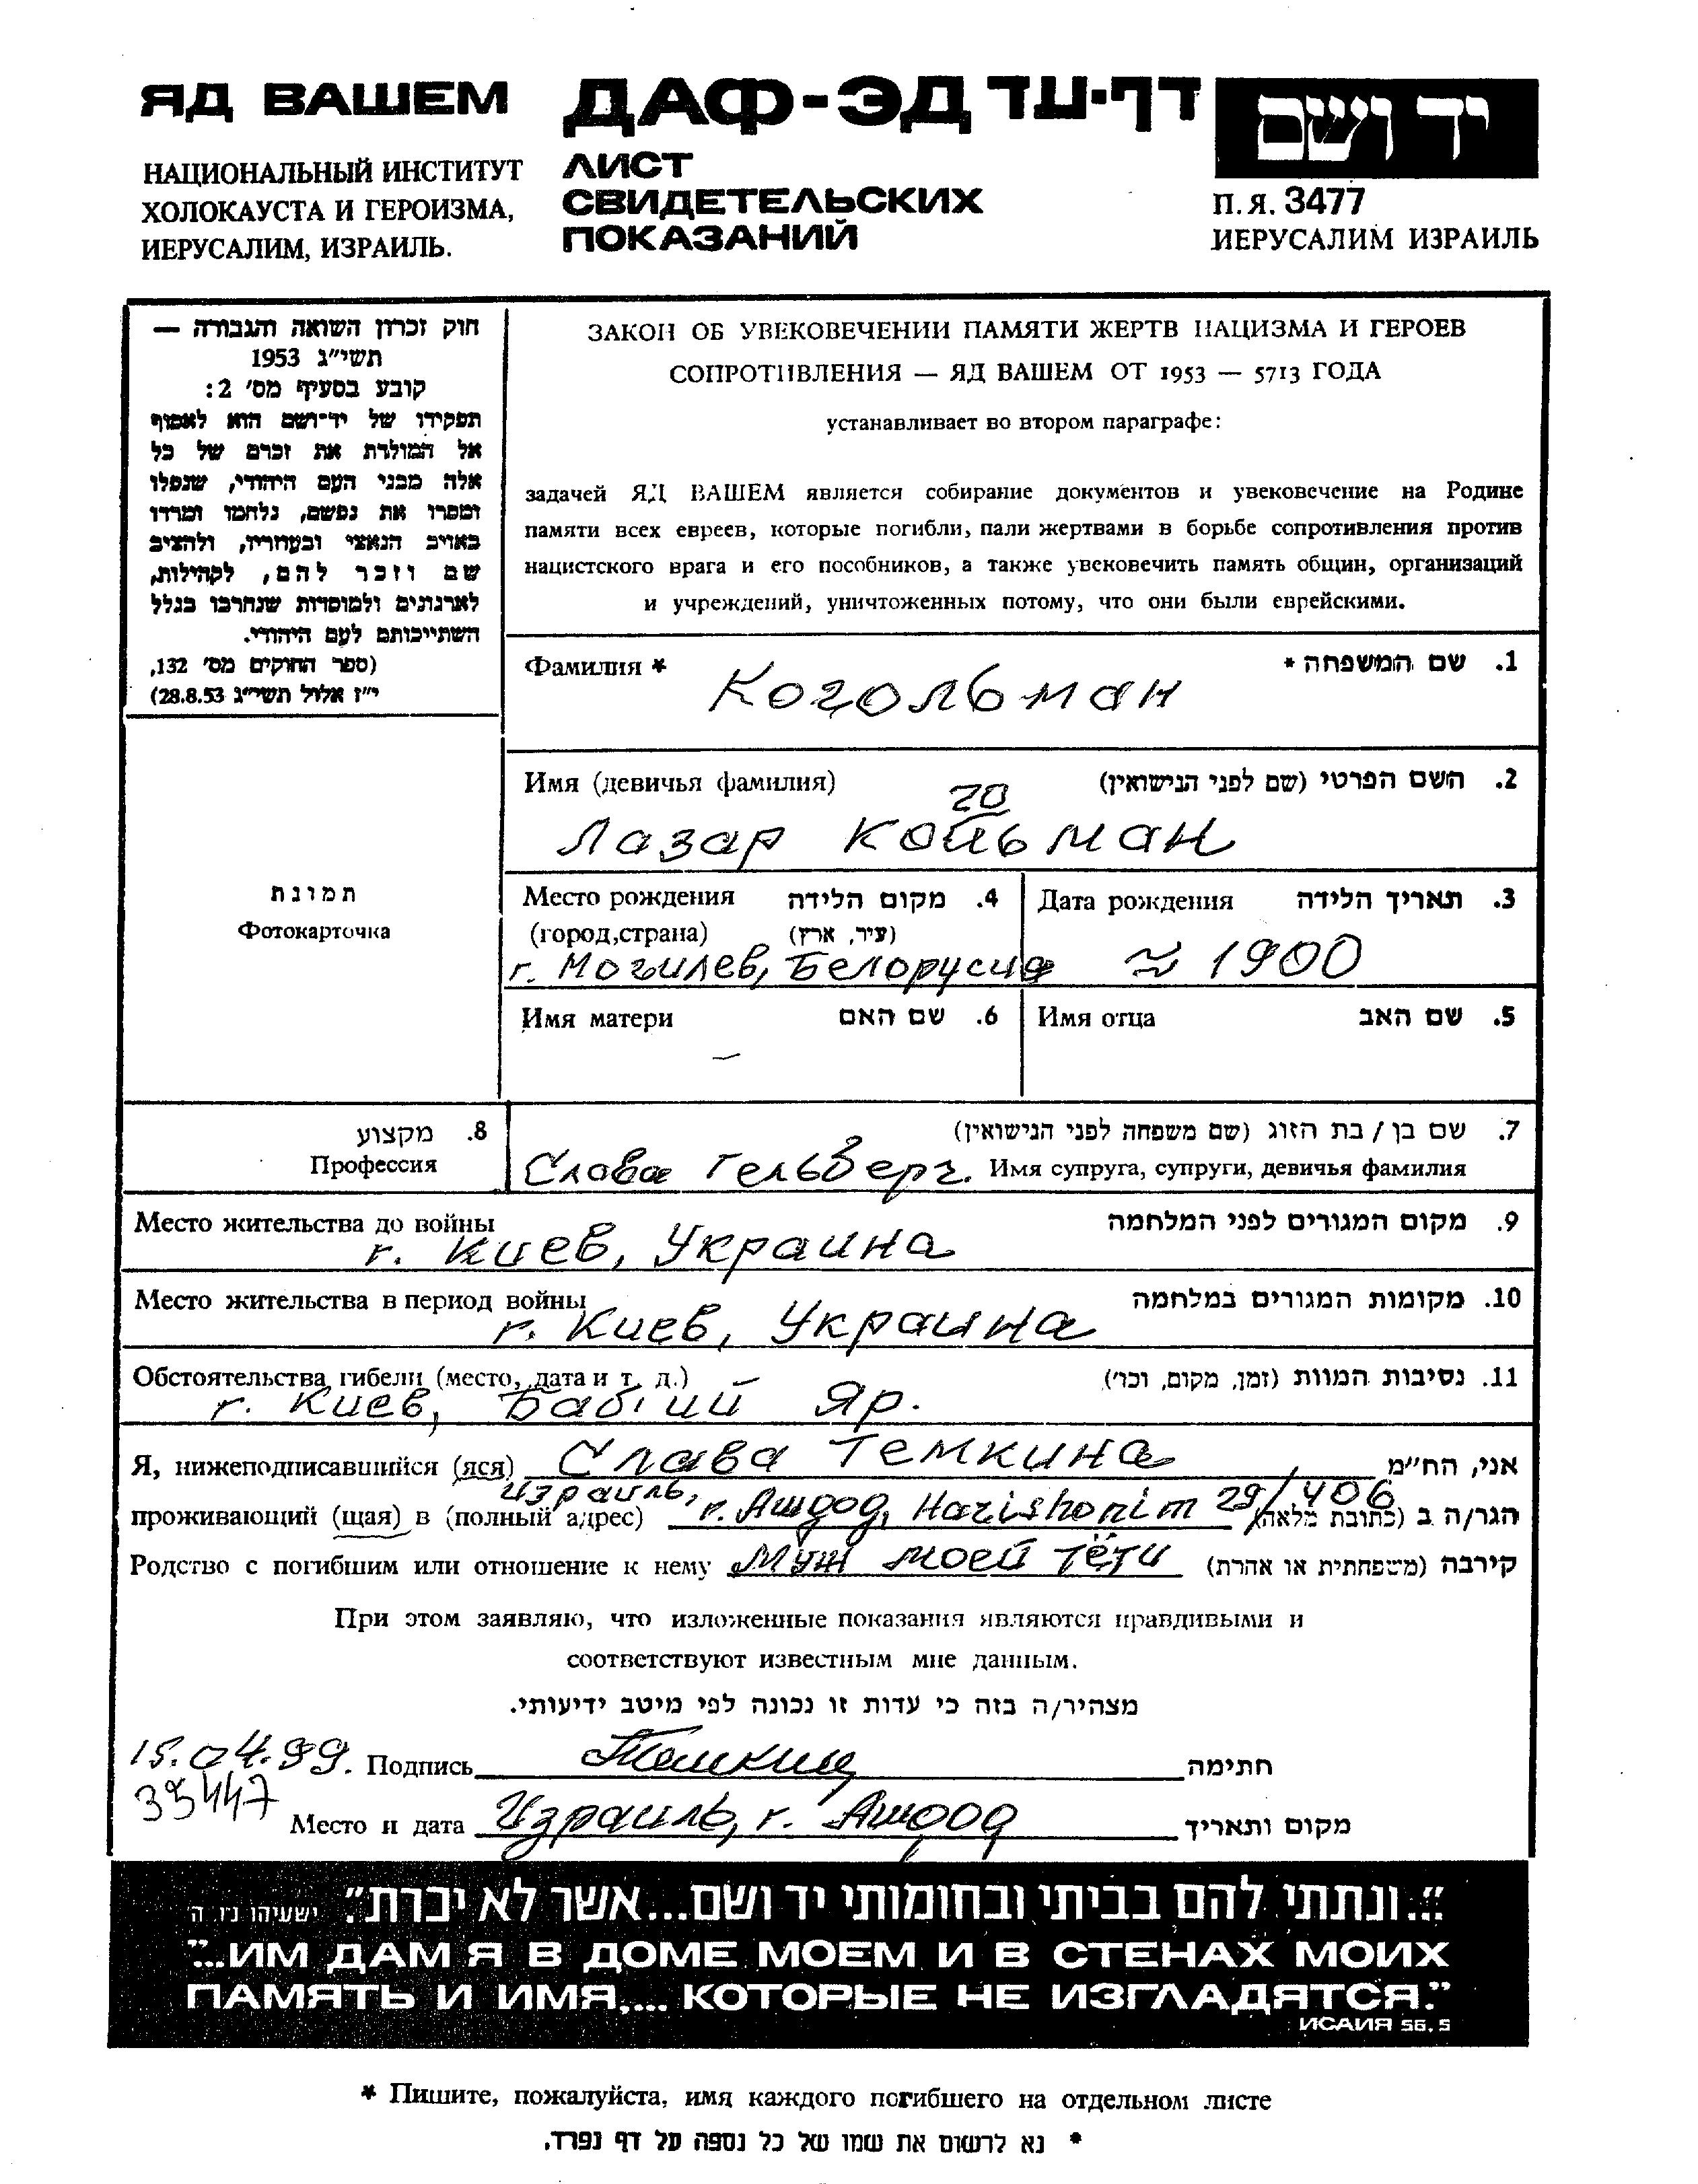 ЯД ВАШЕМ
НАЦИОНАЛЬНЫЙ ИНСТИТУТ
ХОЛОКАУСТА И ГЕРОИЗМА,
ИЕРУСАЛИМ, ИЗРАИЛЬ.
ДАФ-ЭД דף-עד
ЛИСТ
СВИДЕТЕЛЬСКИХ
ПОКАЗАНИЙ
יד ושם
П.Я. 3477
ИЕРУСАЛИМ ИЗРАИЛЬ
חוק זכרון השואה והגבורה —
תשי"ג 1953
קובע בסעיף מס' 2:
תפקידו של יד־ושם הוא לאסוף
אל המולדת את זכרם של כל
אלה מבני העם היהודי, שנפלו
ומסרו את נפשם, נלחמו ומרדו
באויב הנאצי ובעוזריו, ולהציב
שם וזכר להם, לקהילות,
לארגונים ולמוסדות שנחרבו בגלל
השתייכותם לעם היהודי.
(ספר החוקים מס' 132,
י"ז אלול תשי"ג 28.8.53)
ЗАКОН ОБ УВЕКОВЕЧЕНИИ ПАМЯТИ ЖЕРТВ НАЦИЗМА И ГЕРОЕВ
СОПРОТИВЛЕНИЯ — ЯД ВАШЕМ ОТ 1953 — 5713 ГОДА
устанавливает во втором параграфе:
задачей ЯД ВАШЕМ является собирание документов и увековечение на Родине
памяти всех евреев, которые погибли, пали жертвами в борьбе сопротивления против
нацистского врага и его пособников, а также увековечить память общин, организаций
и учреждений, уничтоженных потому, что они были еврейскими.
Фамилия * 1. שם המשפחה *
Когольман
Имя (девичья фамилия) 2. השם הפרטי (שם לפני הנישואין)
го
Лазар Койьман
תמונת
Фотокарточка
Место рождения 4. מקום הלידה
(город,страна) (עיר, ארץ)
г. Могилев, Белорусия
Дата рождения 3. תאריך הלידה
≈ 1900
Имя матери 6. שם האם
—
Имя отца 5. שם האב
8. מקצוע
Профессия
7. שם בן / בת הזוג (שם משפחה לפני הנישואין)
Слова Гельберг. Имя супруга, супруги, девичья фамилия
Место жительства до войны 9. מקום המגורים לפני המלחמה
г. Киев, Украина
Место жительства в период войны 10. מקומות המגורים במלחמה
г. Киев, Украина
Обстоятельства гибели (место, дата и т. д.) 11. נסיבות המוות (זמן, מקום, וכו')
г. Киев, Бабий Яр.
Я, нижеподписавшийся (яся) Слава Темкина אני, הח"מ
проживающий (щая) в (полный адрес) Израиль, г. Ашдод, Harishonim 29/406 הגר/ה ב (כתובת מלאה)
Родство с погибшим или отношение к нему Муж моей тёти קירבה (משפחתית או אחרת)
При этом заявляю, что изложенные показания являются правдивыми и
соответствуют известным мне данным.
מצהיר/ה בזה כי עדות זו נכונה לפי מיטב ידיעותי.
15.04.99. Подпись Темкина חתימה
39447
Место и дата Израиль, г. Ашдод מקום ותאריך
"...ונתתי להם בביתי ובחומותי יד ושם...אשר לא יכרת". ישעיהו נו, ה
"...ИМ ДАМ Я В ДОМЕ МОЕМ И В СТЕНАХ МОИХ
ПАМЯТЬ И ИМЯ,... КОТОРЫЕ НЕ ИЗГЛАДЯТСЯ."
ИСАИЯ 56, 5
* Пишите, пожалуйста, имя каждого погибшего на отдельном листе
* נא לרשום את שמו של כל נספה על דף נפרד.